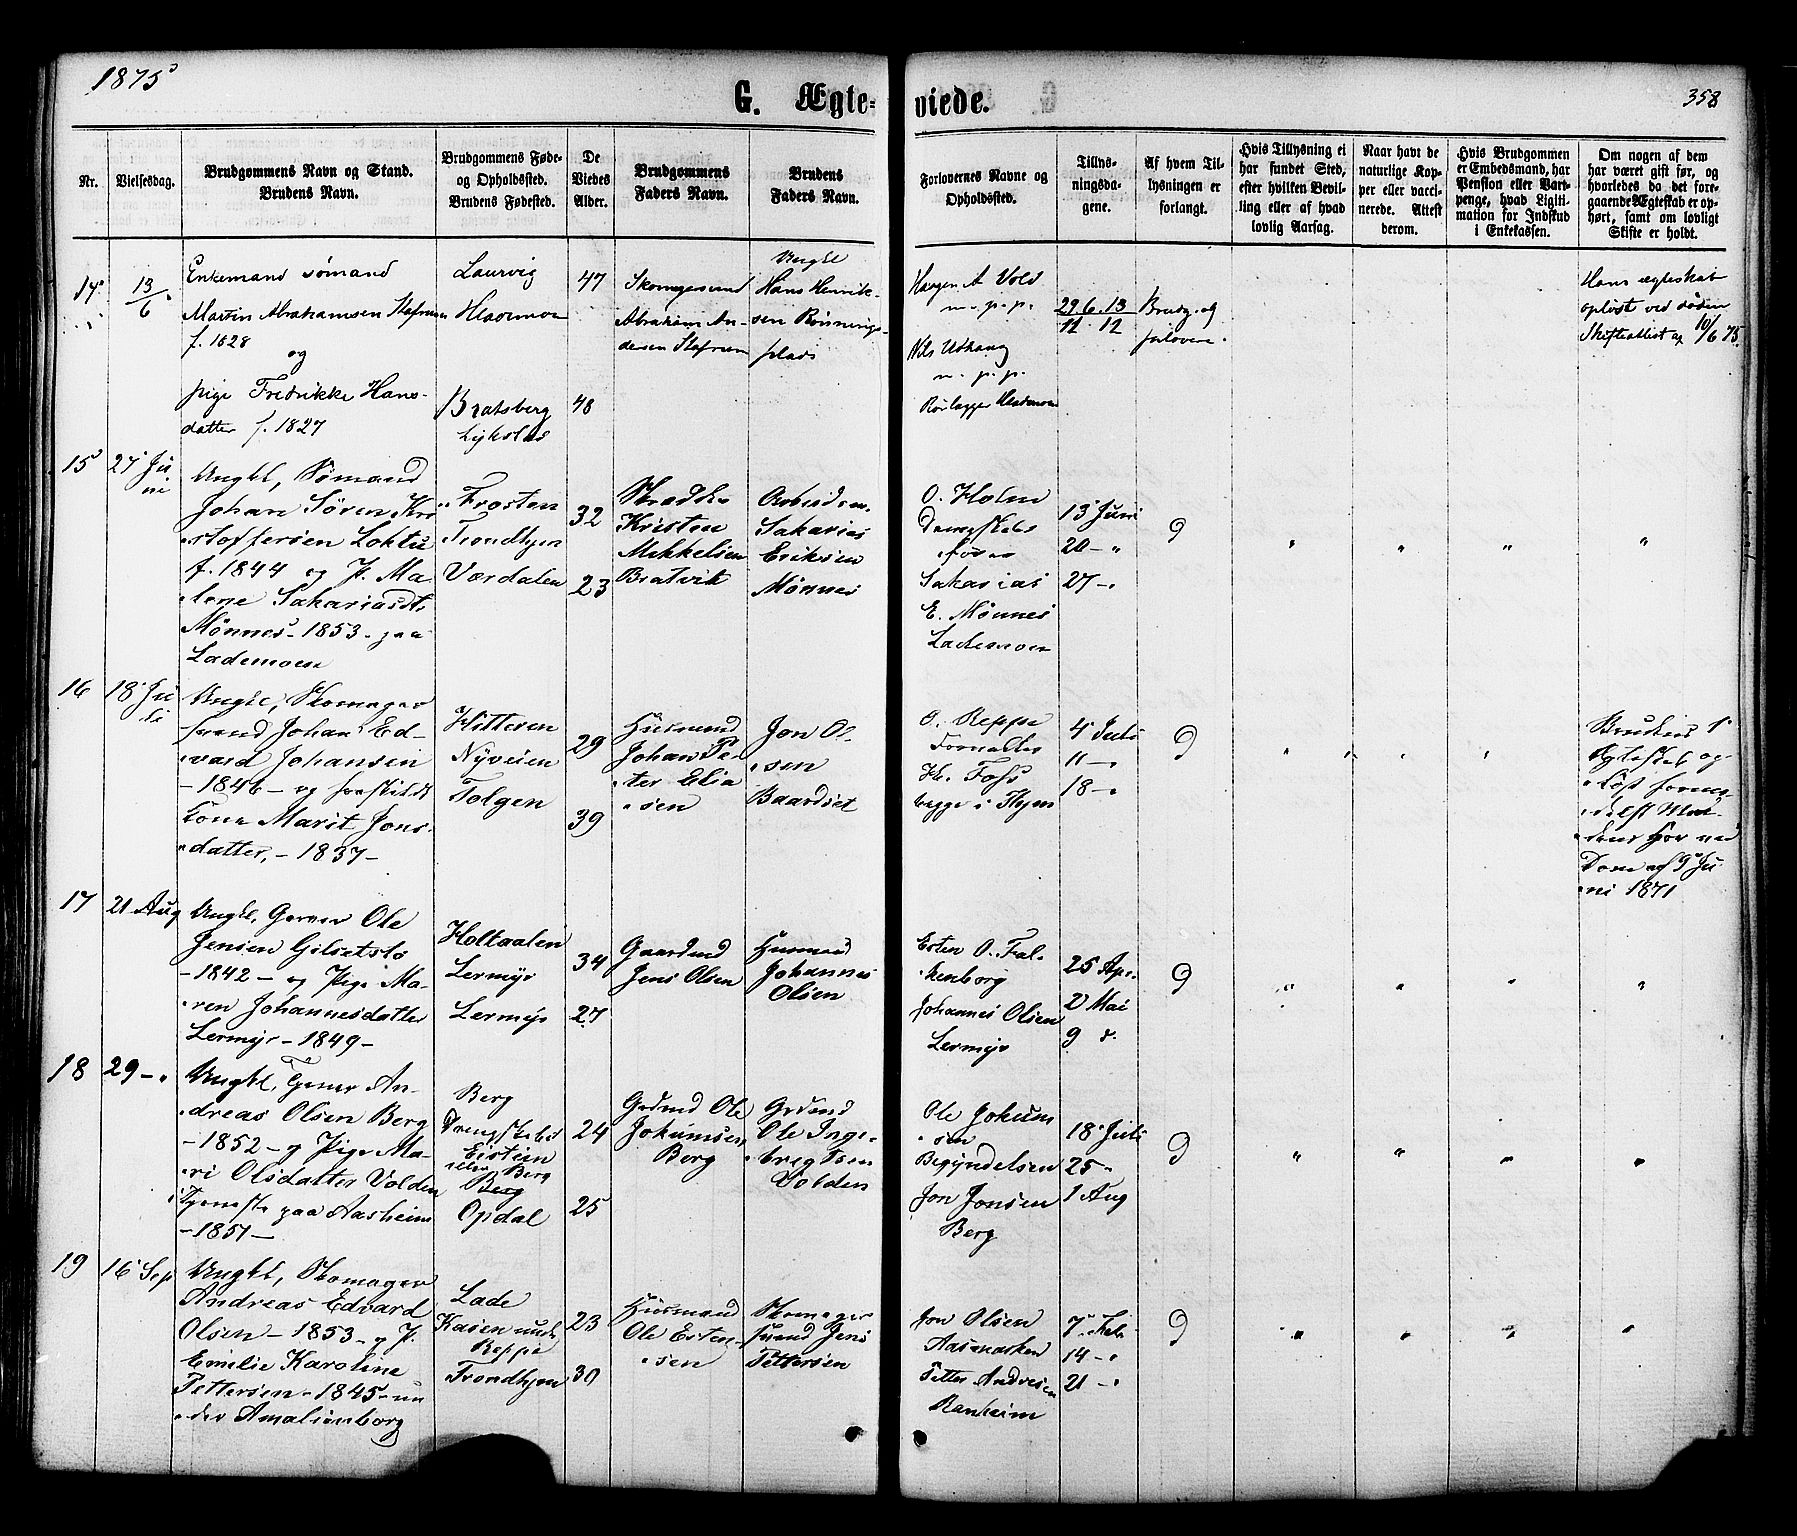 1875
G. Ægte-
viede.
358
Nr.
Vielsesdag.
Brudgommens Navn og Stand.
Brudens Navn.
Brudgommens Føde-
og Opholdssted.
Brudens Fødested.
De
Viedes
Alder.
Brudgommens
Faders Navn.
Brudens
Faders Navn.
Forlovernes Navne og
Opholdssted.
Tillys-
ningsda-
gene.
Af hvem Til-
lysningen er
forlangt.
Hvis Tillysning ei
har fundet Sted,
efter hvilken Bevil-
ling eller af hvad
lovlig Aarsag.
Naar havt de
naturlige Kop-
per eller vacci-
nerede. Attest
derom.
Hvis Brudgommen
er Embedsmand, har
Pension eller Vart-
penge, hvad Ligiti-
mation for Indskud
i Enkekassen.
Om nogen af dem
har været gift før, og
hvorledes da det fore-
gaaende Ægteskab er op-
hørt, samt om lovligt
Skifte er holdt.
14
13/6
Enkemand sømand
Martin Abrahamsen
f. 1828
og
pige Fredrikke Hans-
datter f. 1827
Laurvig
Bratsberg
47
48
Abraham An-
dersen
Ungkl
Hans Henrik-
sen Rønnings-
plads
Haagen A Vold
m. p. p.
Nils
m. p. p.
29 6. 13
12. 12
Brudg. og
forlovere.
Hans ægteskab
opløst ved døden
Skifteattest af 10/6 75.
15
27 Ju
ni
Ungkl, Sømand
Johan Søren Kri
stoffersen
f. 1844 og P. Ma-
lene Sakariasdt.
Mønnes - 1853 - paa
Lademoen
Frosten
Trondhjem
Værdalen
32
23
Skrædder
Kristen
Mikkelsen
Bratvik
Arbeidsm.
Sakarias
Eriksen
Mønnes
O. Holm
Dampskibs
Sakarias
E. Mønnes
Lademoen
13 Juni
20 - "
27 - "
16
18 Ju
li
Ungkl, Skomager
svend Johan Ed-
vard Johansen
- 1846 - og fraskildt
Kone Marit Jons-
datter, - 1837 -
Hitteren
Nyveien
Tolgen
29
39
Husmand
Johan Pe-
ter Elia
sen
Jon Ol-
sen
Baardset
O. Reppe
H. Foss
begge i Thjem
4 Juli
11 - "
18 - "
Brudens 1'
Ægteskab op-
løst forme-
delst Man-
dens Hor ved
Dom af 9' Ju
ni 1871
17
21 Aug
Ungkl, Garver Ole
Jensen
- 1842 - og Pige Ma-
ren Johannesdatter
Lermyr - 1849 -
Holtaalen
Lermyr
Lermyr
34
27
Gaardmd
Jens Olsen
Husmand
Johannes
Olsen
Esten O. Fal-
kenborg
Johannes Olsen
Lermyr
25 Apr.
2 Mai
9 d.
18
29 - "
Ungkl, Tjener An-
dreas Olsen Berg
- 1852 - og Pige Ma-
ri Olsdatter Volden
Tjeneste paa Aasheim
- 1851 -
Berg
Eistien
eller Berg
Berg
Opdal
24
25
Grdmd Ole
Jokumsen
Berg
Grdmd
Ole Inge-
brigtsen
Volden
Ole Jokum
sen
Begyndelsen
Jon Jonsen
Berg
18' Juli
25 -
1 Aug
19
16 Sep
Ungkl, Skomager
Andreas Edvard
Olsen - 1853 - og P.
Emilie Karoline
Pettersen - 1845 - un
der Amalienborg
Lade
Kasen under
Reppe
Trondhjem
23
30
Husmand
Ole Esten-
sen
Skomager
svend Jens
Pettersen
Jon Olsen
Aasmarken
Petter Andresen
Ranheim
7. Feb
14 - "
21 - "